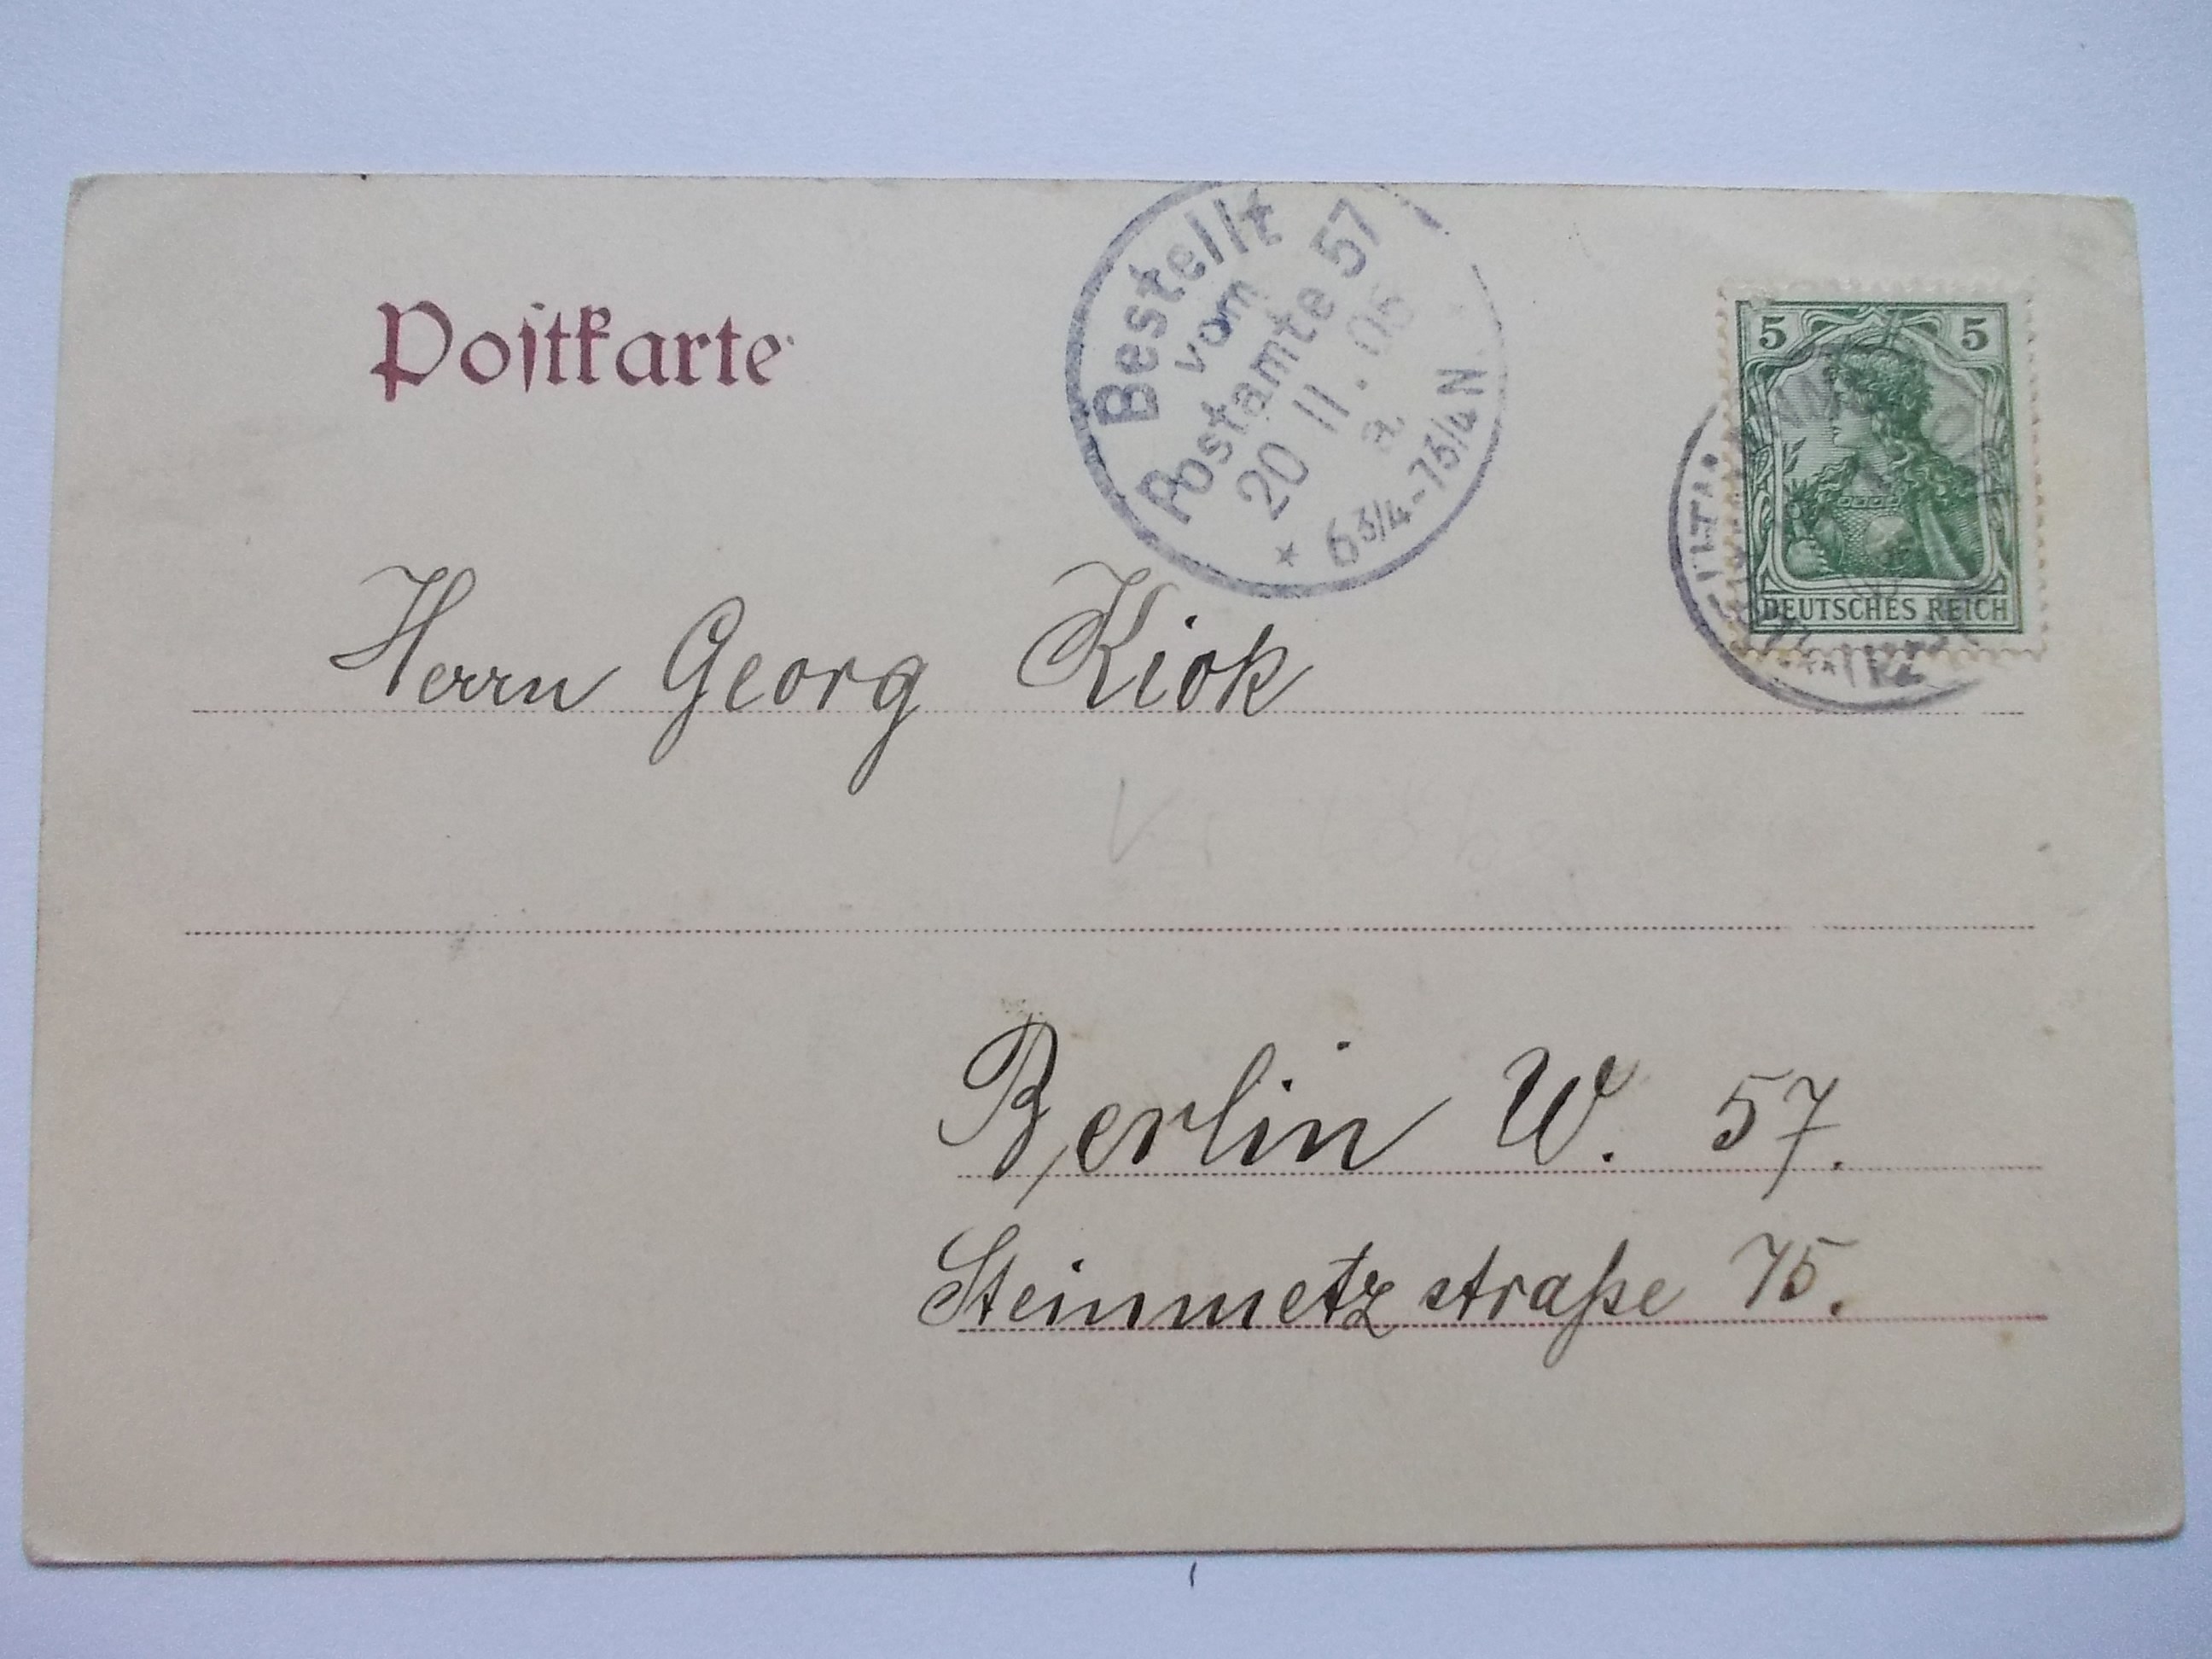 Postkarte
Bestellt
vom
Postamte 57
20 11. 05
a
* 6 3/4-7 3/4 N.
5 5
DEUTSCHES REICH
Herrn Georg Kiok
Berlin W. 57.
Steinmetzstraße 75.